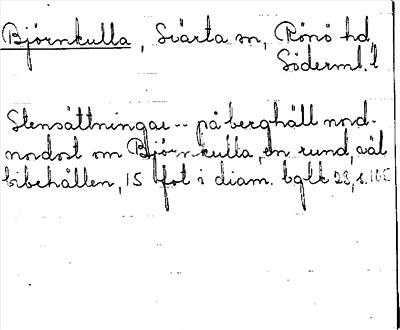 Bjørnkulla, Svärta sn, Rönö hd,
Söderml. l
Stensättningar -- på berghäll nord-
nordost om Bjørnkulla, en rund, väl
bibehållen, 15 fot i diam. bglk 23, s.